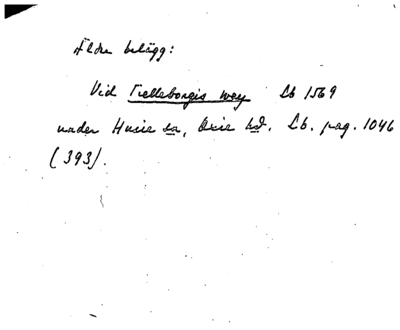 Äldre belägg:
Vid Trelleborgis wey Lb 1569
under Husie sn, Oxie hd. Lb. pag. 1046
(393).